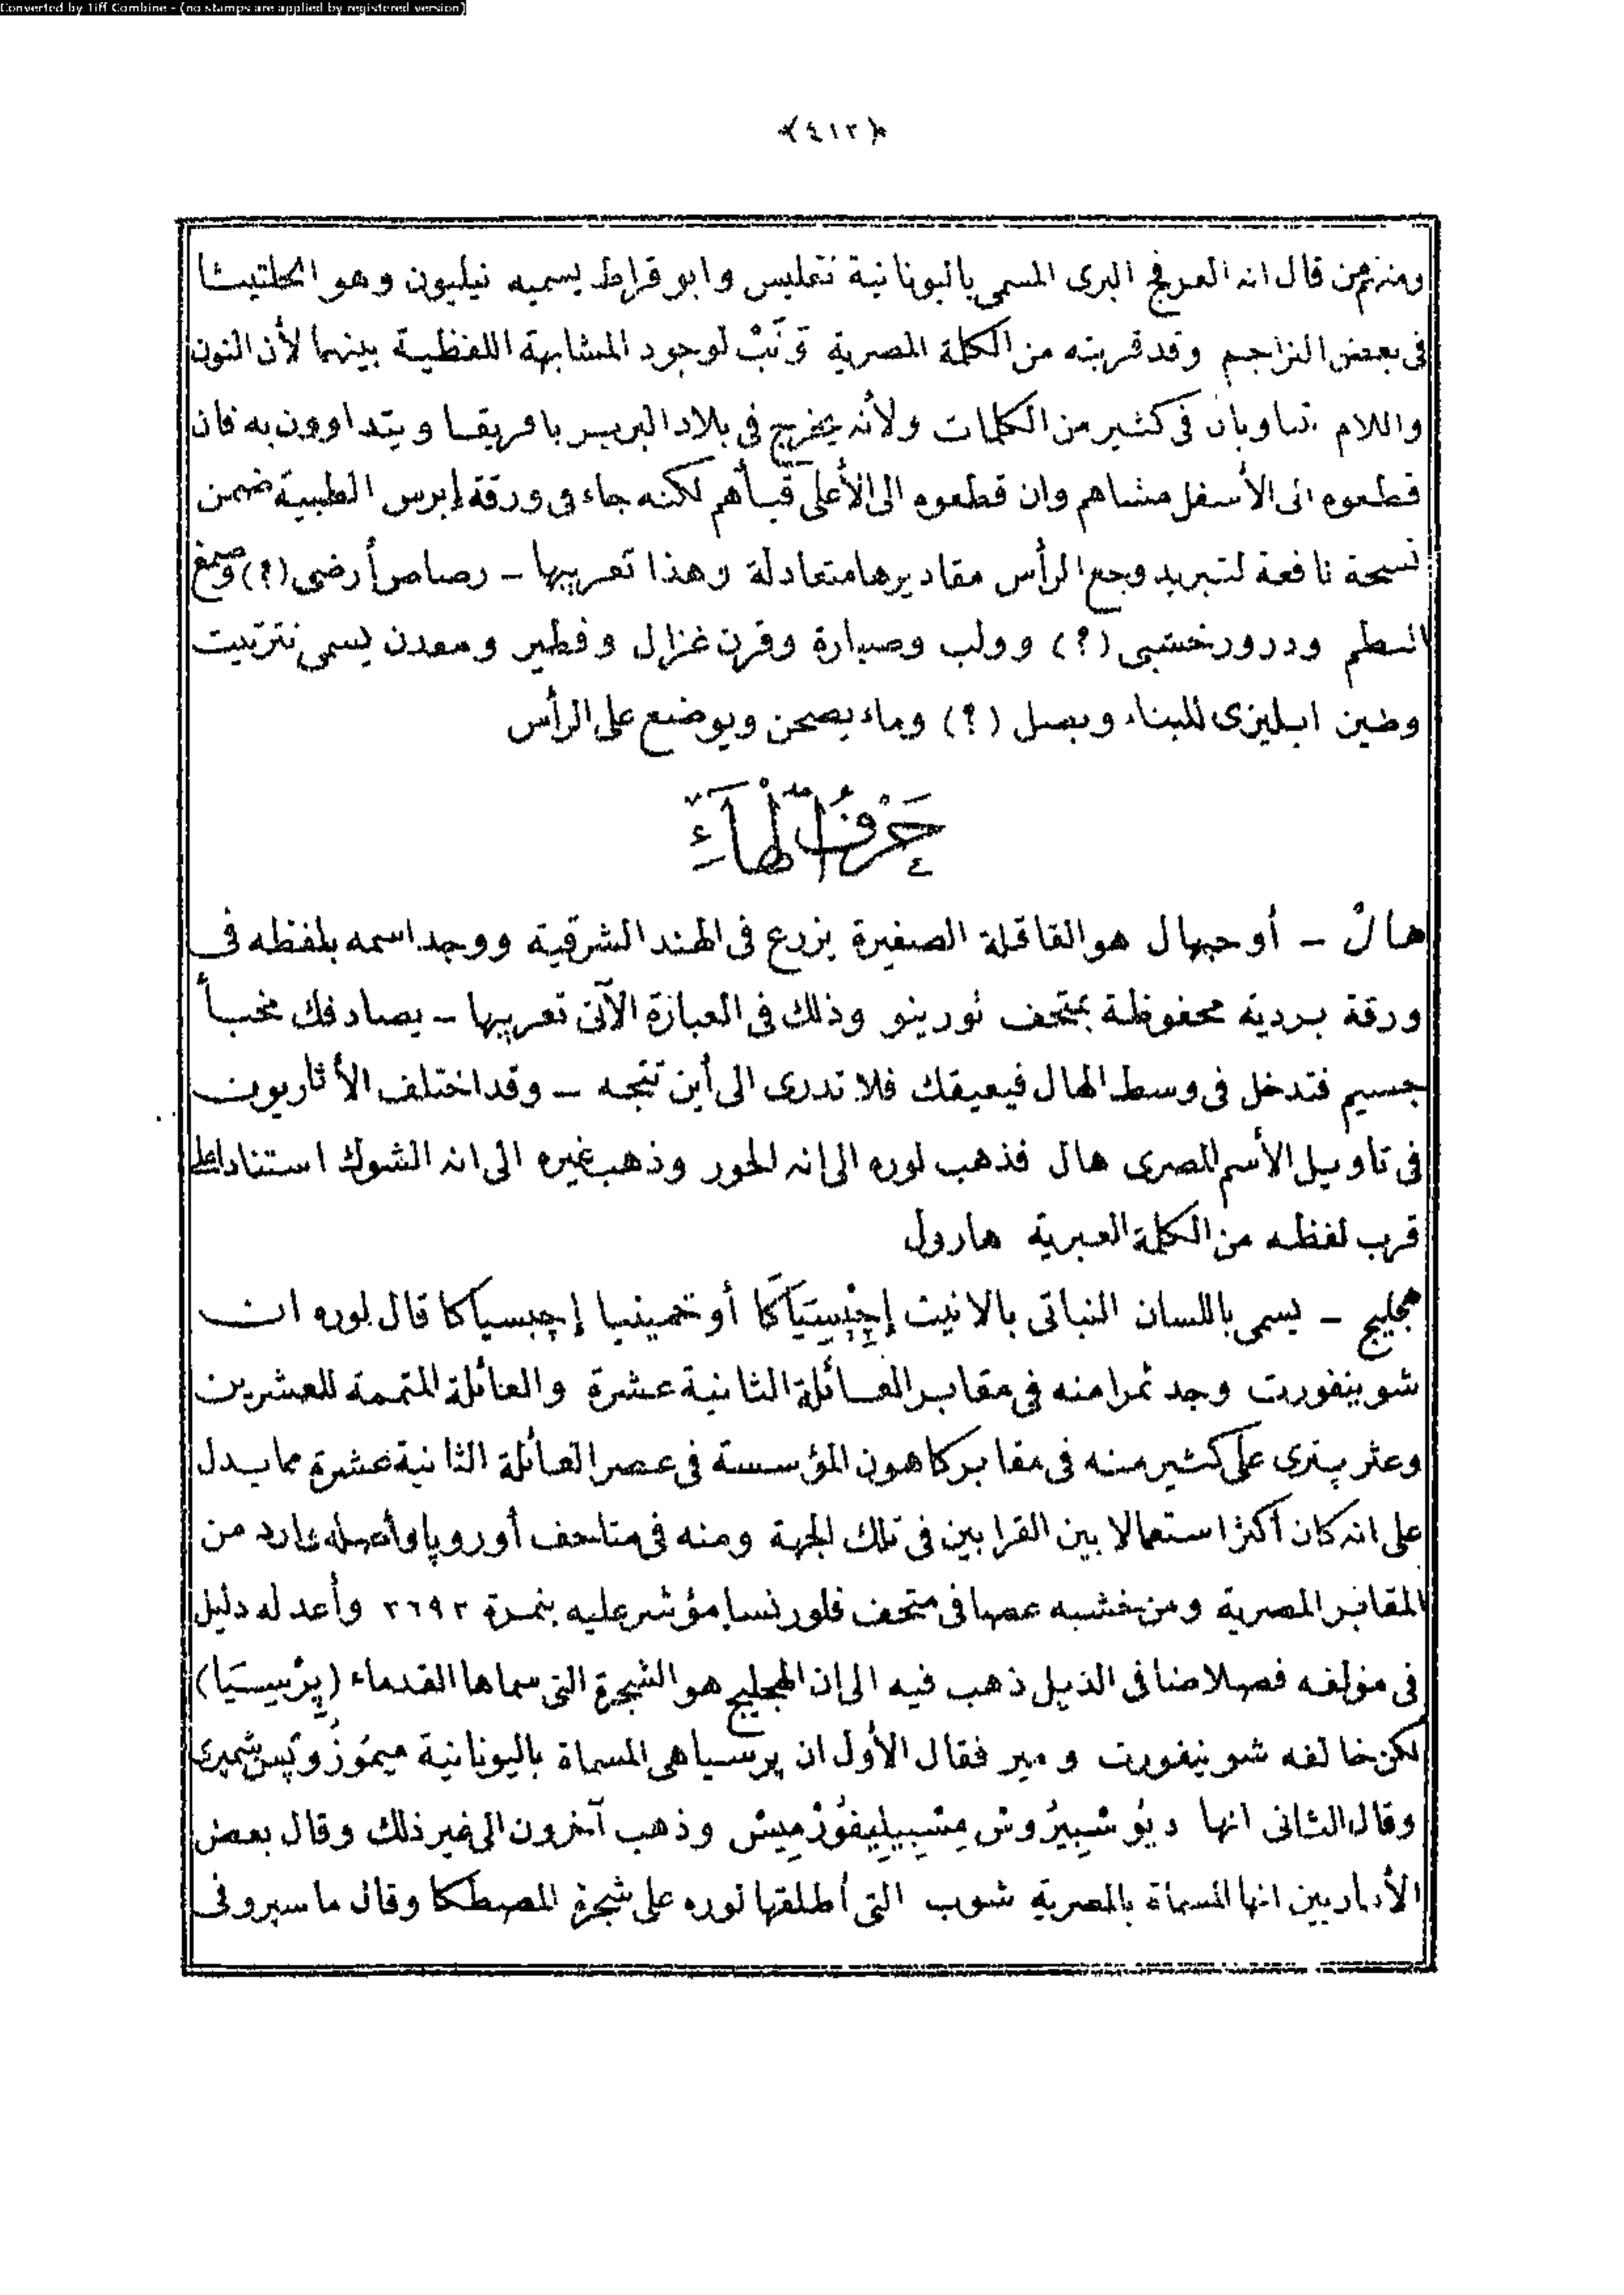 Converted by Tiff Combine - (no stamps are applied by registered version)
﴿٤١٢﴾
ومنهم من قال انه العرفج البرى المسمى باليونانية نتمليس وابو قراط يسميه نيليون وهو الحلتيثا
فى بعض التراجم وقد قربته من الكلمة المصرية تونَبْ لوجود المشابهة اللفظية بينهما لأن النون
واللام يتناوبان فى كثير من الكلمات ولأنه يخرج فى بلاد البربر بافريقا ويتداوون به فان
قطعوه الى الأسفل مشاهم وان قطعوه الى الأعلى قيأهم لكنه جاء فى ورقة إبرس الطبية ضمن
نسخة نافعة لتبريد وجع الرأس مقاديرها متعادلة وهذا تعريبها – رصاص أرضى (؟) وصمغ
البطم ودرور خشبى (؟) وولب وصبارة وقرن غزال وفطير ومعدن يسمى نترتيت
وطين ابليزى للبناء وبصل (؟) وماء يصحن ويوضع على الرأس
حَرْفُ الْهَاءِ
هالْ – أو حبهال هو القاقلة الصغيرة يزرع فى الهند الشرقية ووجد اسمه بلفظه فى
ورقة بردية محفوظة بمتحف تورينو وذلك فى العبارة الآتى تعريبها – يصادفك مخبأ
جسيم فتدخل فى وسط الهال فيعيقك فلا تدرى الى أين تتجه – وقد اختلف الأثاريون
فى تأويل الأسم المصرى هال فذهب لوره الى انه الحور وذهب غيره الى انه الشوك استنادا على
قرب لفظه من الكلمة العبرية هارول
هجليج – يسمى باللسان النباتى بالانيت إجِبْسِتَيَاكَا أو خمينيا إجبسياكا قال لوره ان
شوينفورت وجد ثمرا منه فى مقابر العائلة الثانية عشرة والعائلة المتممة للعشرين
وعثر پترى على كثير منه فى مقابر كاهون المؤسسة فى عصر العائلة الثانية عشرة مما يدل
على انه كان أكثر استعمالا بين القرابين فى تلك الجهة ومنه فى متاحف أوروپا وأصله وارد من
المقابر المصرية ومن خشبه عصا فى متحف فلورنسا مؤشر عليه بنمرة ٢٦٩٢ وأعد له دليل
فى مؤلفه فصلا ضافى الذيل ذهب فيه الى ان الهجليج هو الشجرة التى سماها القدماء (پِرْسِيَا)
لكن خالفه شوينفورت ومير فقال الأول ان پرسيا هى المسماة باليونانية ميموُزُوپس شمپرى
وقال الثانى انها ديُوسْپيرُوسْ مِسْپِيلِيفُوْرْمِيسْ وذهب آخرون الى غير ذلك وقال بعض
الأثاريين انها المسماة بالمصرية شوب التى أطلقها لوره على شجرة المصطكا وقال ماسپرو فى